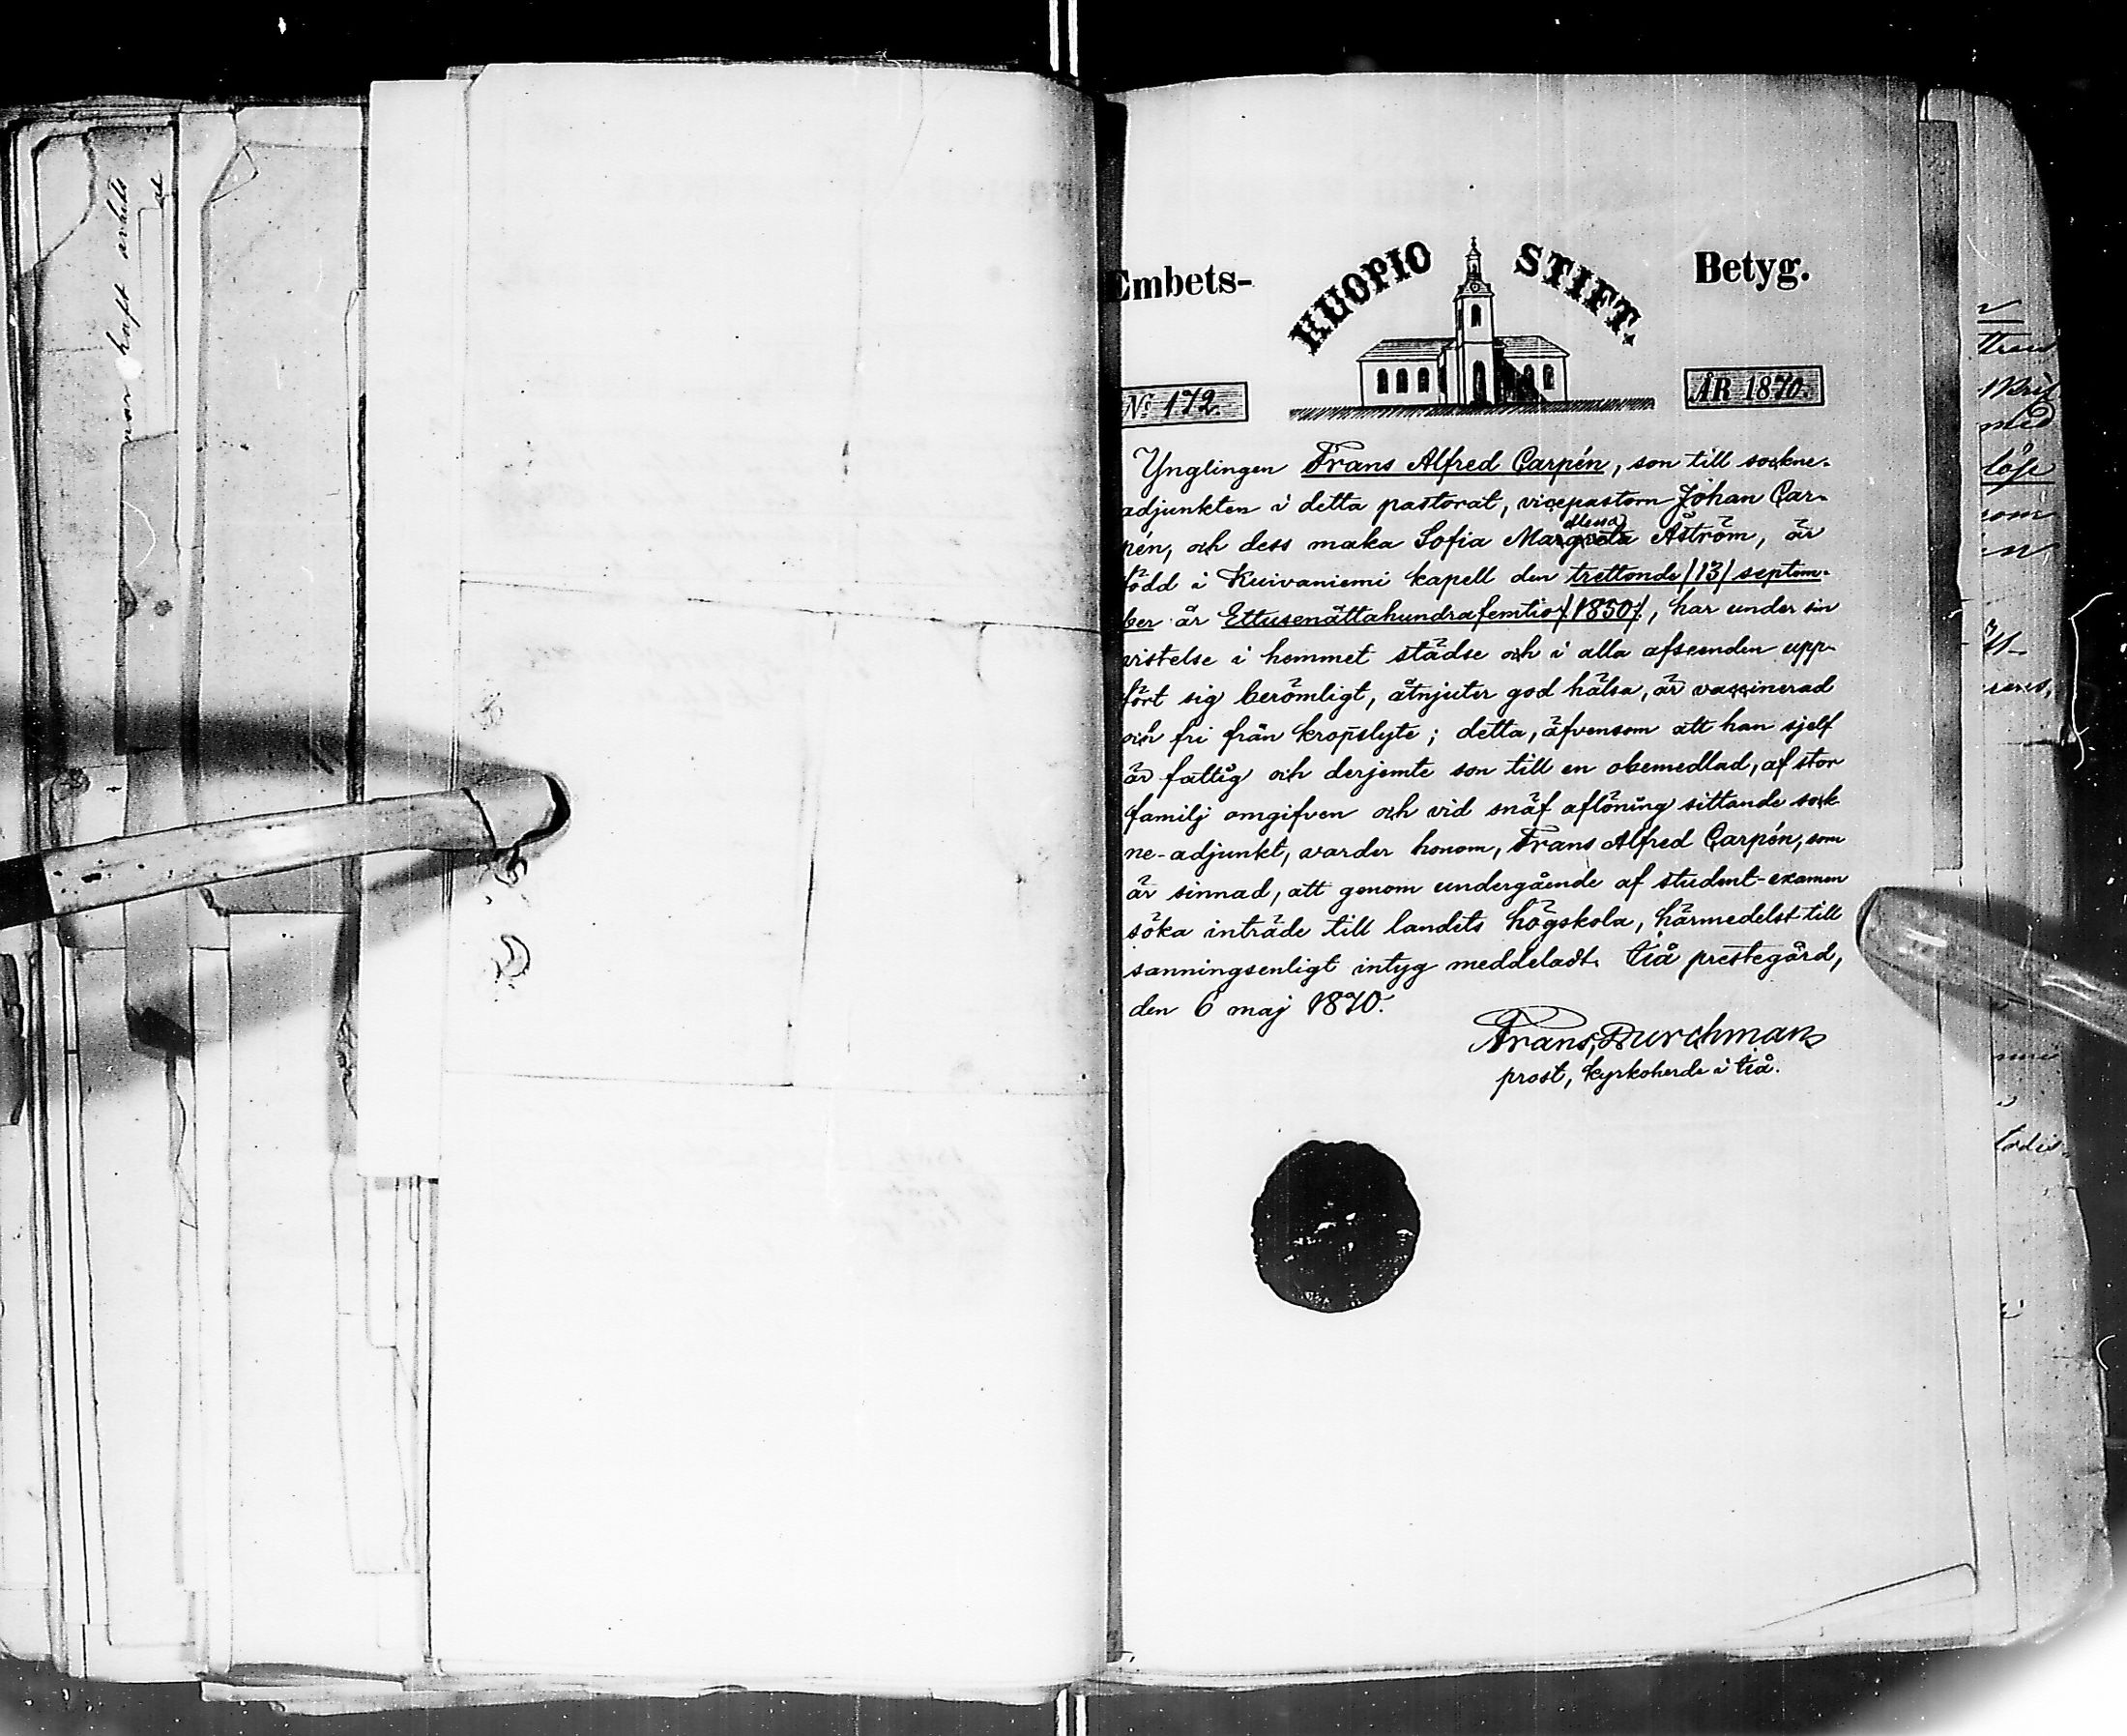 Embets- KUOPIO STIFT. Betyg.
No 172. ÅR 1870.
Ynglingen Frans Alfred Carpén, son till sockne-
adjunkten i detta pastorat, vicepastorn Johan Car-
pén, och dess maka Sofia Margreta Åström, är
född i Kuivaniemi kapell den trettonde /13/ septem-
ber år Ettusenåttahundrafemtio /:1850:/, har under sin
vistelse i hemmet städse och i alla afseenden upp-
fört sig berömligt, åtnjuter god hälsa, är vaccinerad
och fri från kropslyte; detta, äfvensom att han sjelf
är fattig och derjemte son till en obemedlad, af stor
familj omgifven och vid snäf aflöning sittande sock-
ne-adjunkt, varder honom, Frans Alfred Carpén, som
är sinnad, att genom undergående af student-examen
söka inträde till landets högskola, härmedelst till
sanningsenligt intyg meddeladt. Iiå prestegård,
den 6 maj 1870.
Frans Durchman
prost, kyrkoherde i Iiå.